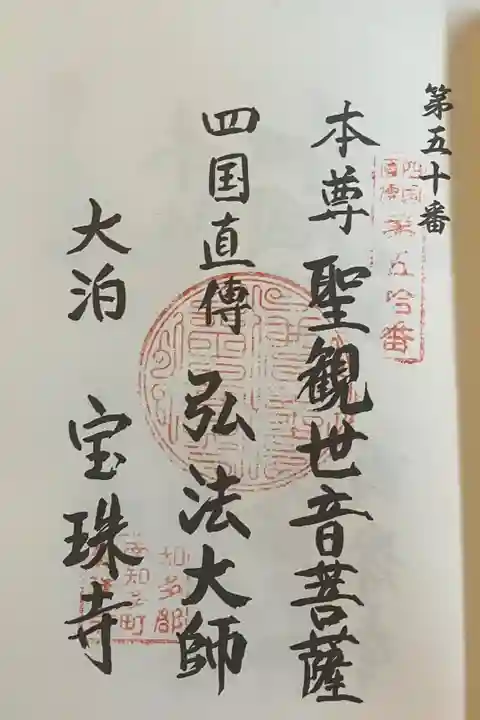 第五十番
本尊 聖観世音菩薩
四国直傳 弘法大師
大泊 宝珠寺
四国
直傳
第五拾番
知多郡